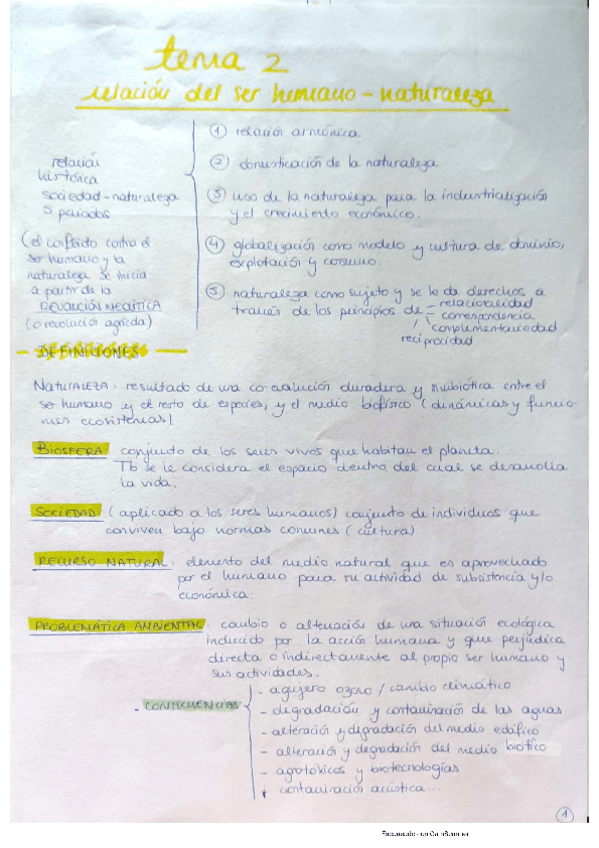 tema 2
relación del ser humano - naturaleza
relación
histórica
sociedad - naturaleza
5 periodos
(el conflicto contra el
ser humano y la
naturaleza se inicia
a partir de la
REVOLUCIÓN NEOLÍTICA
(o revolución agrícola)
① relación armónica
② domesticación de la naturaleza
③ uso de la naturaleza para la industrialización
y el crecimiento económico.
④ globalización como modelo y cultura de dominio,
explotación y consumo.
⑤ naturaleza como sujeto y se le da derechos a
través de los principios de
- relacionalidad
- correspondencia
complementariedad
reciprocidad
- DEFINICIONES -
NATURALEZA: resultado de una co-evolución duradera y simbiótica entre el
ser humano y el resto de especies, y el medio biofísico (dinámicas y funcio
nes ecosistemas)
BIOSFERA conjunto de los seres vivos que habitan el planeta.
Tb se le considera el espacio dentro del cual se desarrolla
la vida.
SOCIEDAD (aplicado a los seres humanos) conjunto de individuos que
conviven bajo normas comunes (cultura)
RECURSO NATURAL: elemento del medio natural que es aprovechado
por el humano para su actividad de subsistencia y/o
económica.
PROBLEMÁTICA AMBIENTAL: cambio o alteración de una situación ecológica
inducido por la acción humana y que perjudica
directa o indirectamente al propio ser humano y
sus actividades.
- CONSECUENCIAS
- agujero ozono / cambio climático
- degradación y contaminación de las aguas
- alteración y degradación del medio edáfico
- alteración y degradación del medio biótico
- agrotóxicos y biotecnologías
contaminación acústica...
1
Escaneado con CamScanner